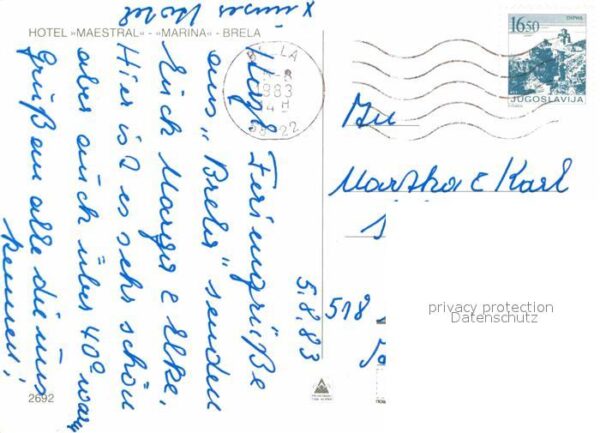 HOTEL »MAESTRAL« - »MARINA« - BRELA
x unser Hotel
Herzl. Feriengrüße
aus „Brela" senden
Euch Marga & Elke,
Hier ist es sehr schön
aber auch über 40° warm
Grüßen alle die uns
kennen!
5.8.83
BRELA
1983
58322
16.50
JUGOSLAVIJA
An
Martha & Karl
518
privacy protection
Datenschutz
2692